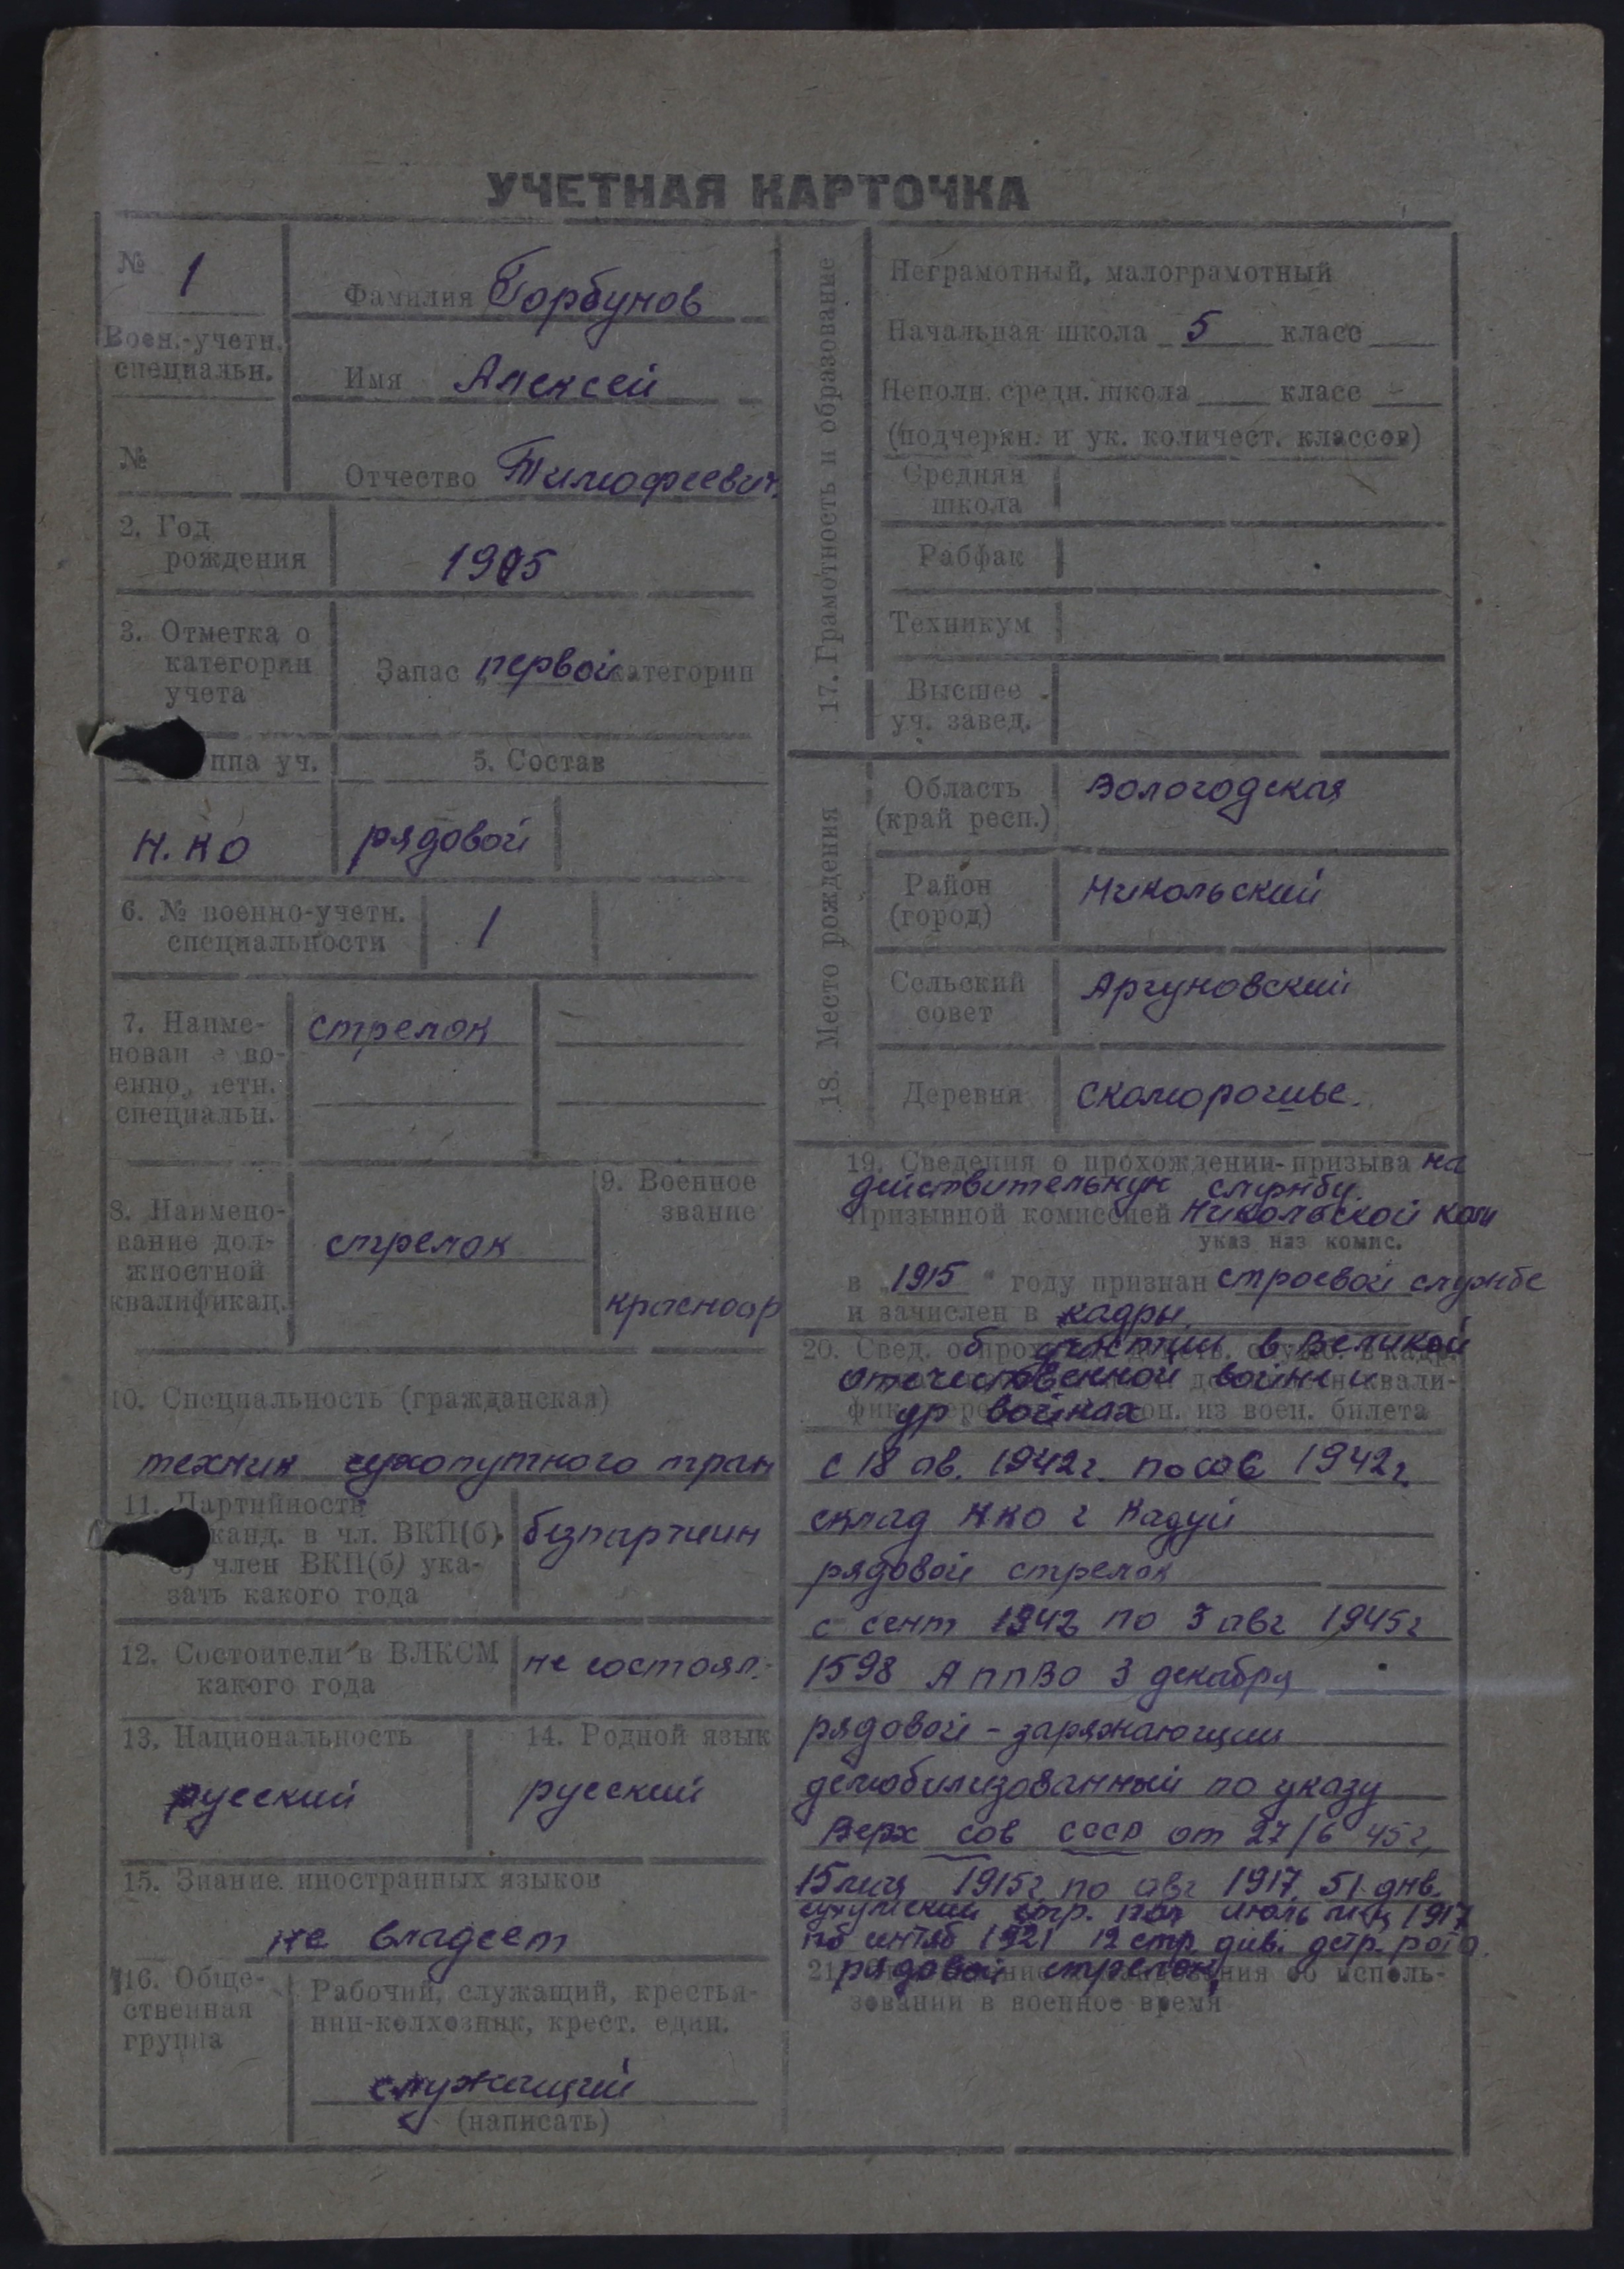 УЧЕТНАЯ КАРТОЧКА
№ 1
Воен.-учетн.
специальн.
№
Фамилия Горбунов
Имя Алексей
Отчество Тимофеевич
2. Год
рождения
3. Отметка о
категории
учета
Запас первой категории
ппа уч.
5. Состав
Н.КО
рядовой
6. № военно-учетн.
специальности
1
7. Наиме-
нован е во-
енно, четн.
специальн.
стрелок
8. Наимено-
вание дол-
жностной
квалификац.
стрелок
9. Военное
звание
красноар
10. Специальность (гражданская)
техник сухопутного тран
11. Партийность
канд. в чл. ВКП(б)
член ВКП(б) ука-
зать какого года
безпартиин
12. Состоители в ВЛКСМ
какого года
не состоял.
13. Национальность
русский
14. Родной язык
русский
15. Знание иностранных языков
не владеет
16. Обще-
ственная
группа
Рабочий, служащий, крестья-
нин-колхозник, крест. един.
служащий
(написать)
17. Грамотность и образование
Неграмотный, малограмотный
Начальная школа 5 класс
Неполн. средн. школа класс
(подчеркн. и ук. количест. классов)
Средняя
школа
Рабфак
Техникум
Высшее
уч. завед.
18. Место рождения
Область
(край респ.)
Вологодская
Район
(город)
Никольский
Сельский
совет
Аргуновский
Деревня
19. Сведения о прохождении призыва на
действительную службу.
Призывной комиссией Никольской ком
указ наз комис.
в 1915 году признан строевой службе
и зачислен в кадры.
20. Свед. о участии в Великой
отечественной войне и
др войнах из воен. билета
с 18 ав. 1942г. по 1942г.
склад НКО г Кадуй
рядовой стрелок
с сент 1942 по 3 авг 1945г
1598 А ППВО 3 декабря
рядовой - заряжающии
демобилизованный по указу
Верх Сов СССР от 27/6 45г.
1915г. по авг 1917
стр. июль 1917
1921 12 стр. див. рота.
рядовой стрелок
21. ния об исполь-
зовании в военное время